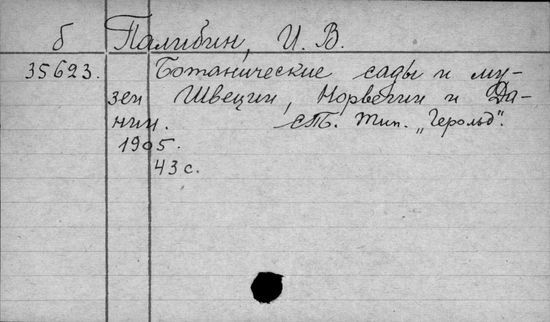 б Палибин, И. В.
35623. Ботанические сады и му-
зеи Швеции, Норвегии и Да-
нии. СПб. Тип. „Герольд".
1905.
43 с.